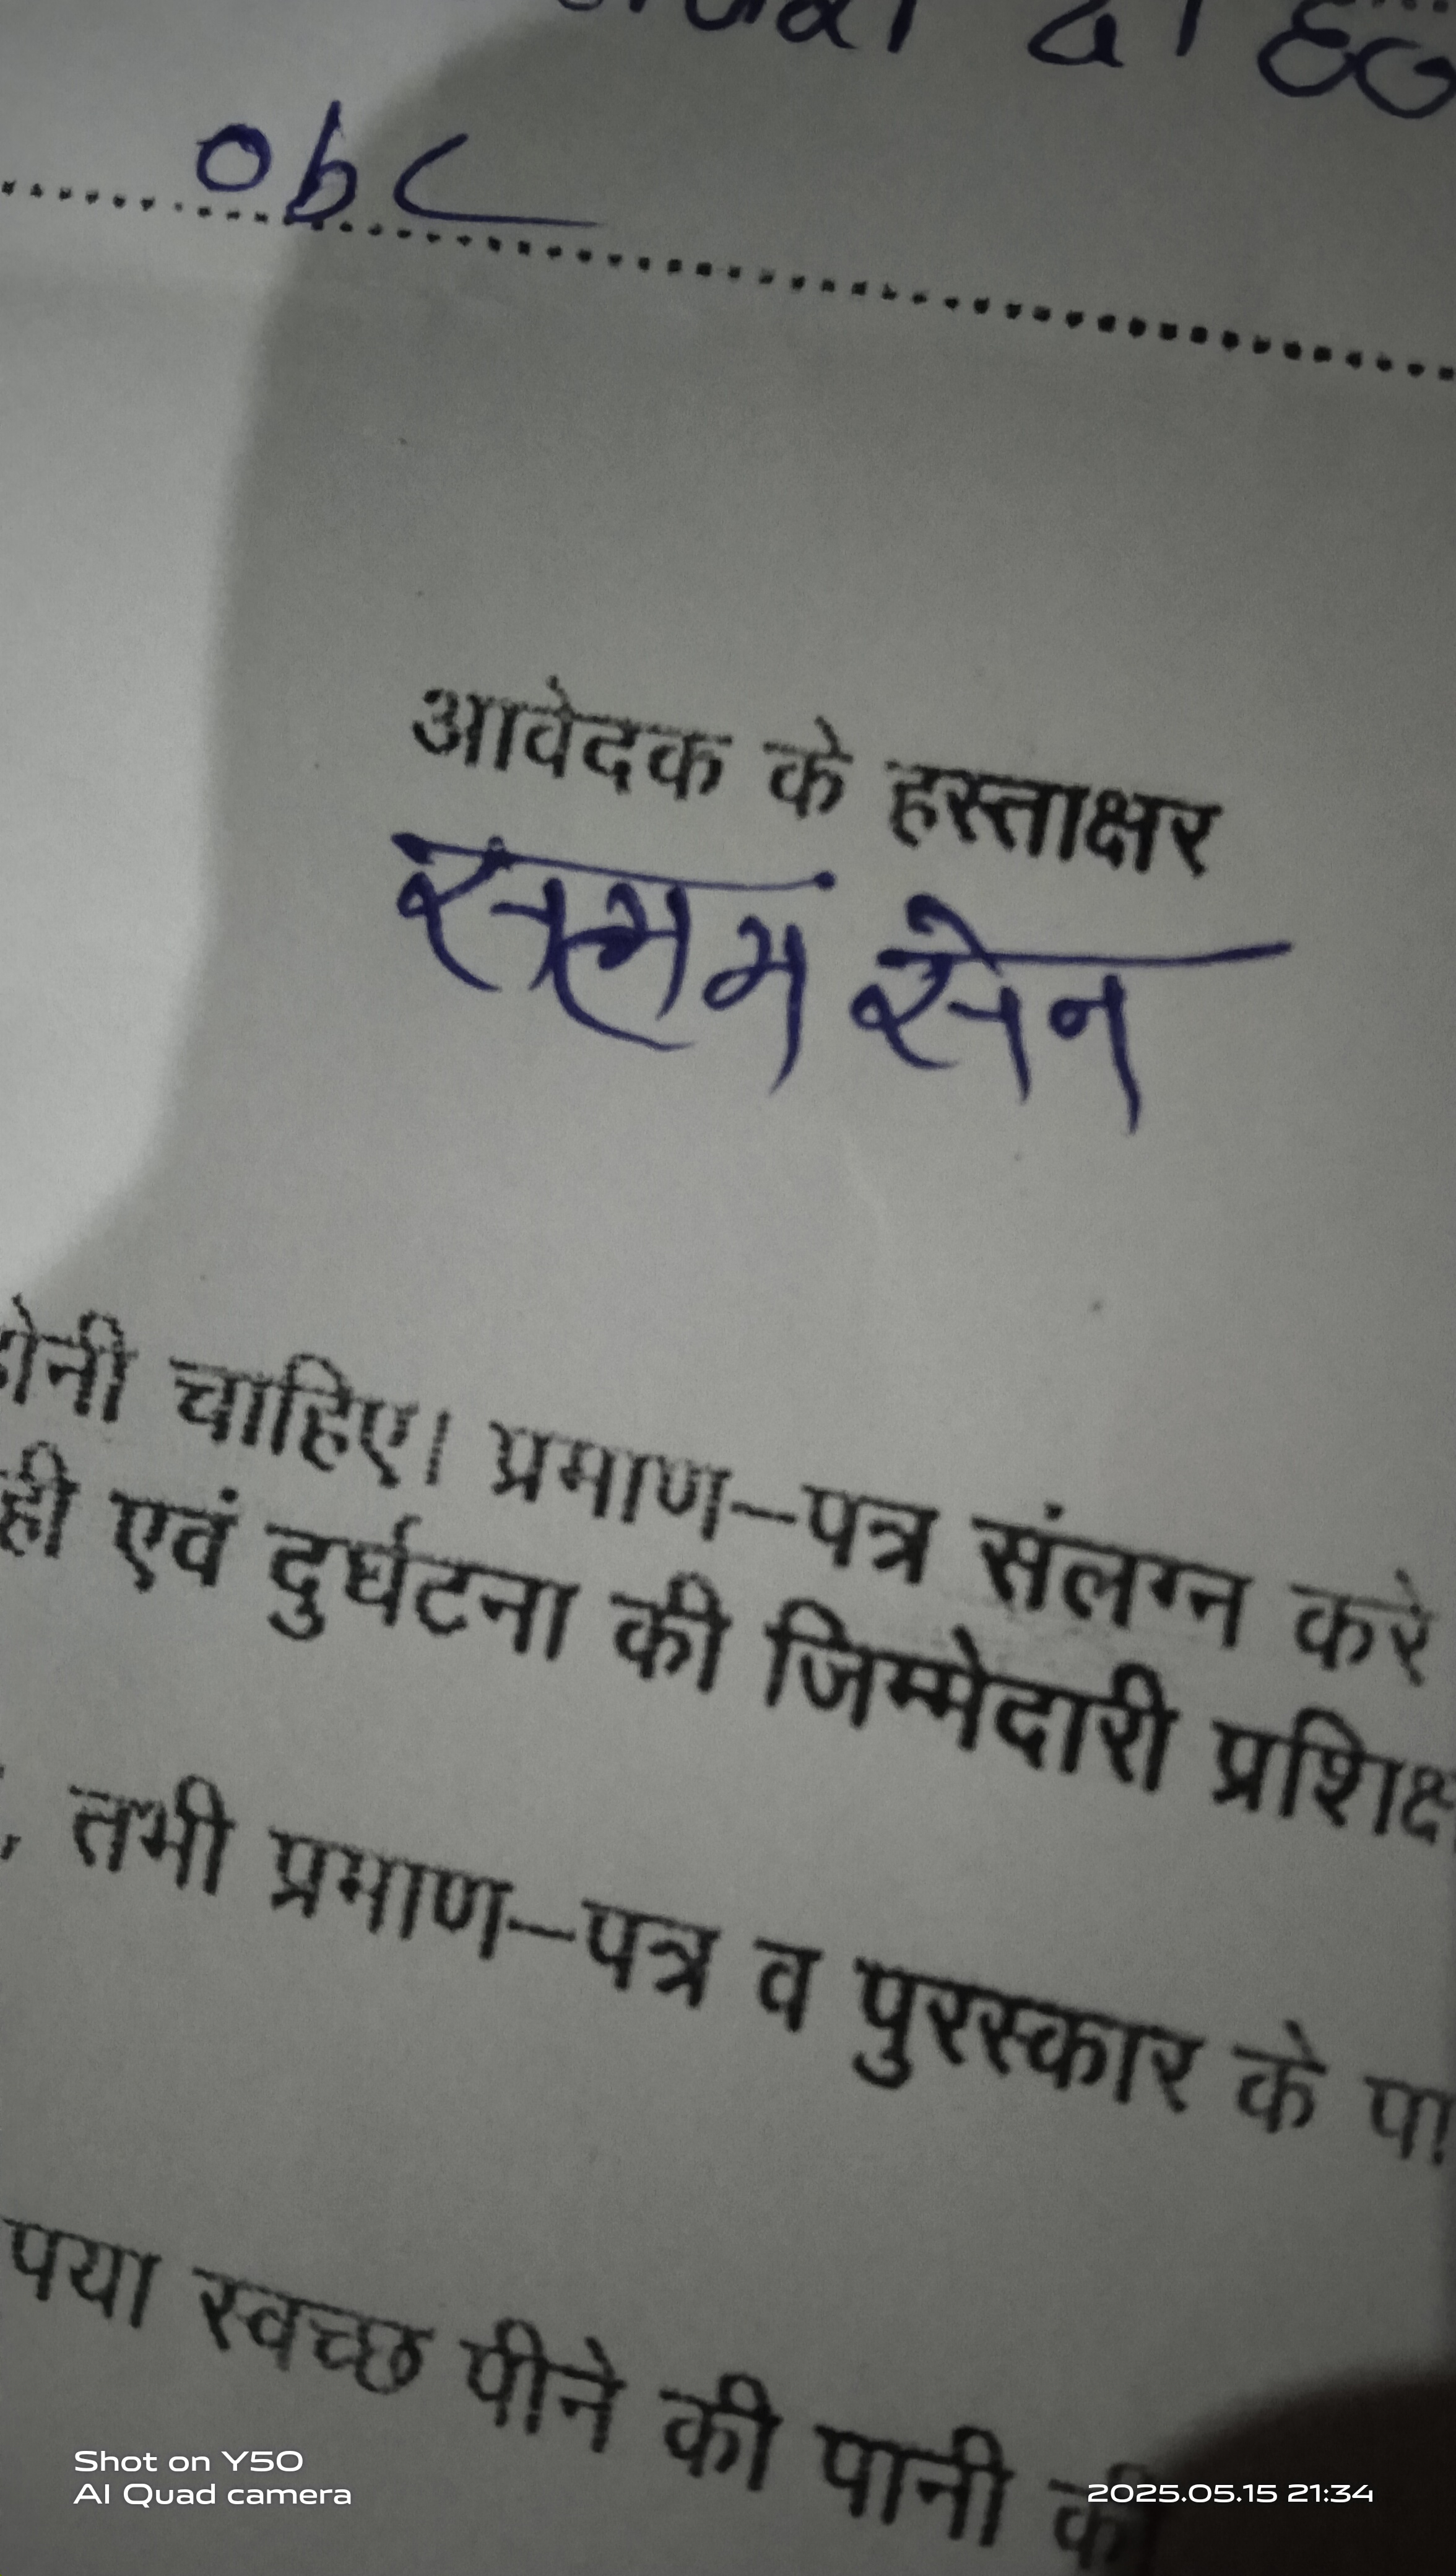 obc
आवेदक के हस्ताक्षर
सेन
होनी चाहिए। प्रमाण-पत्र संलग्न करे
ही एवं दुर्घटना की जिम्मेदारी प्रशिक्ष
, तभी प्रमाण-पत्र व पुरस्कार के पा
पया स्वच्छ पीने की पानी की
Shot on Y50
AI Quad camera
2025.05.15 21:34